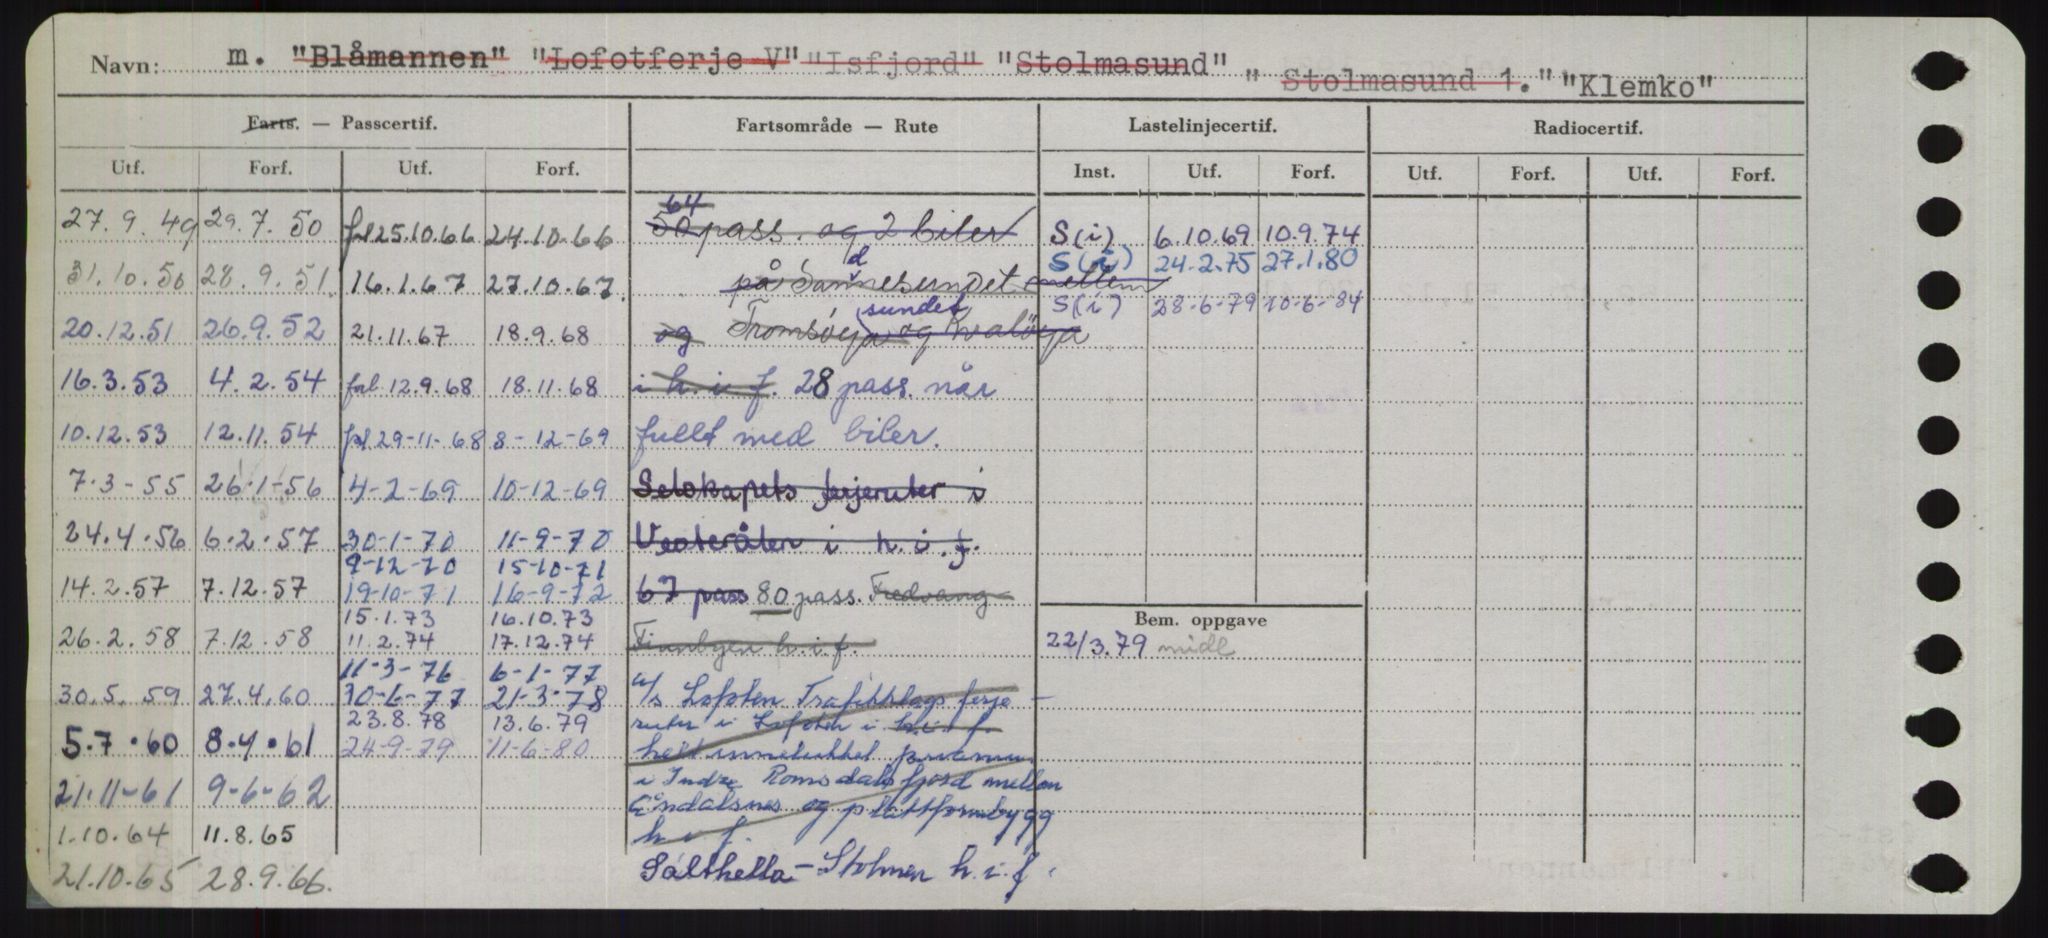 Navn: m. "Blåmannen" "Lofotferje V" "Isfjord" "Stolmasund" "Stolmasund 1." "Klemko"
Farts. — Passcertif. Fartsområde — Rute Lastelinjecertif. Radiocertif.
Utf. Forf. Utf. Forf. Inst. Utf. Forf. Utf. Forf. Utf. Forf.
64
27.9.49 29.7.50 fl 25.10.66 24.10.66 50 pass. og 2 biler S(i) 6.10.69 10.9.74
S(i) 24-2.75 27.1.80
31.10.50 28.9.51. 16.1.67 27.10.67. på Sannesundet mellem
d
S(i) 28-6-79 10-6-84
sundet
20.12.51 26.9.52 21.11.67 18.9.68 og Tromsøya og Kvaløya
16.3.53 4.2.54 fal. 12.9.68 18.11.68 i h.i.f. 28 pass. når
10.12.53 12.11.54 fl 29-11-68 8-12-69 fullt med biler.
7.3-55 26-1-56 4-2-69 10-12-69 Selskapets ferjeruter i
24.4.56 6.2.57 30-1-70 11-9-70 Vesterålen i h.i.f.
9-12-70 15-10-71
14.2.57 7.12.57 19-10-71 16-9-72 67 pass 80 pass. Fredvang
15.1.73 16.10.73
Bem. oppgave
26.2.58 7.12.58 11.2.74 17.12.74 Finnbyen h.i.f. 22/3.79 midl
11-3-76 6-1-77
30.5.59 27.4.60 30-6-77 21-3-78 a/s Lofoten Trafikklags ferje-
23.8.78 13.6.79 ruter i Lofoten i h.i.f.
5.7.60 8.4.61 24-9-79 11-6-80 helt innelukket
i Indre Romsdalsfjord mellom
21.11-61 9-6-62 Åndalsnes og plattformbygg
1.10.64 11.8.65 h i f.
21.10.65 28.9.66. Sålthella - Stolmen h.i.f.